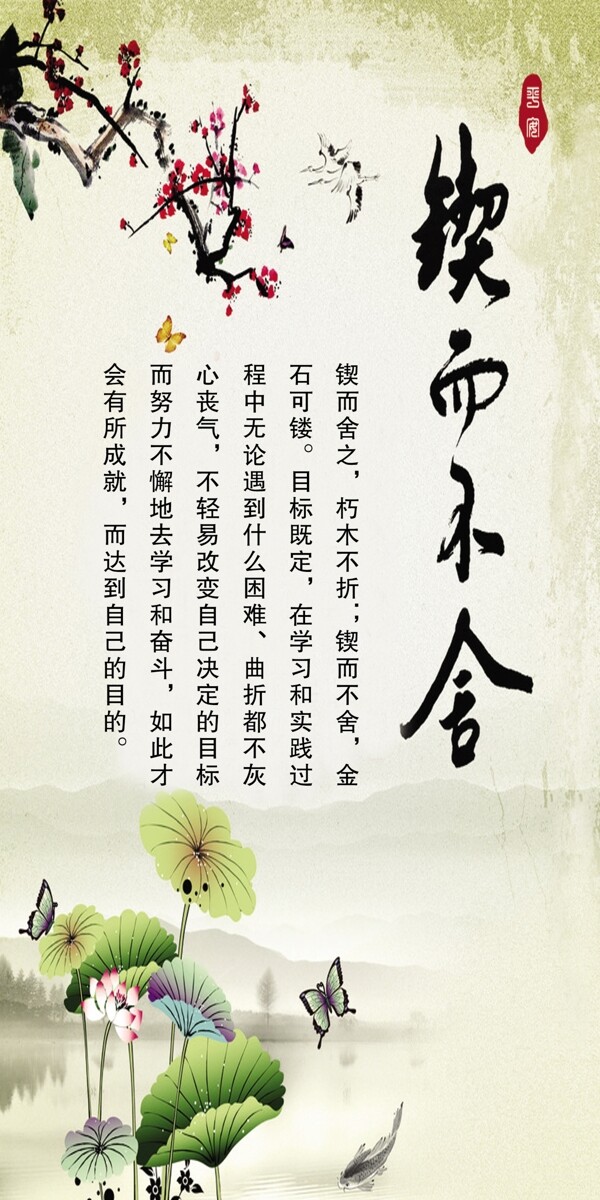 平安
锲而不舍
锲而舍之，朽木不折；锲而不舍，金
石可镂。目标既定，在学习和实践过
程中无论遇到什么困难、曲折都不灰
心丧气，不轻易改变自己决定的目标
而努力不懈地去学习和奋斗，如此才
会有所成就，而达到自己的目的。